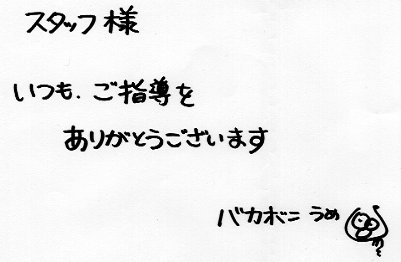 スタッフ様
いつも、ご指導を
ありがとうございます
バカボニ うめ